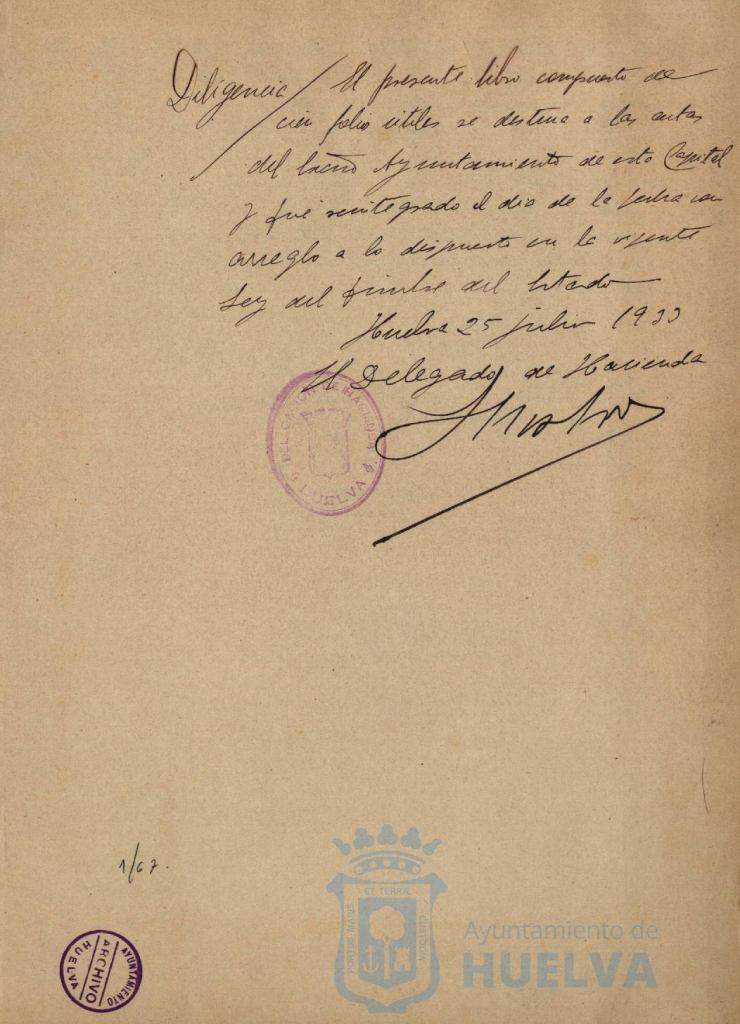 Diligencia / El presente libro compuesto de
cien folio utiles se destina a las actas
del Excmo Ayuntamiento de esta Capital
y fué reintegrado el dia de la fecha con
arreglo a lo dispuesto en la vigente
Ley del timbre del Estado
Huelva 25 julio 1933
El Delegado de Hacienda
DELEGACION DE HACIENDA
HUELVA
1/67.
AYUNTAMIENTO
ARCHIVO
HUELVA
PORTUS MARIS
ET TERRÆ
CUSTODIA
Ayuntamiento de
HUELVA